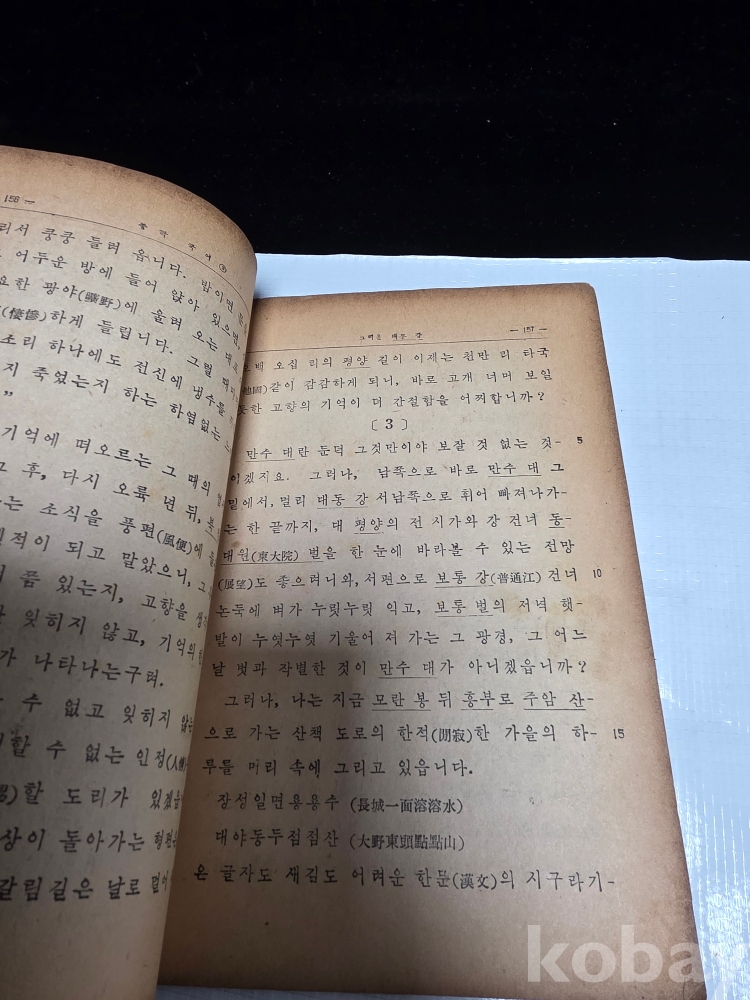 156 —
중 학 국 어
리서 쿵쿵 들려 옵니다. 밤이면
어두운 방에 들어 앉아 있으면,
요한 광야(曠野)에 울려 오는 대포
(悽慘)하게 들립니다. 그럴 때마다
소리 하나에도 전신에 냉수를
지 죽었는지 하는 하염없는
”
기억에 떠오르는 그 때의
그 후, 다시 오륙 년 뒤,
는 소식을 풍편(風便)에
적이 되고 말았으니, 그
쯤 있는지, 고향을
잊히지 않고, 기억의
가 나타나는구려.
수 없고 잊히지 않는
할 수 없는 인정(人情)
할 도리가 있겠
상이 돌아가는 형편
갈림길은 날로 멀어
그리운 때 — 157 —
백 오십 리의 평양 길이 이제는 천만 리 타국
(他國)같이 감감하게 되니, 바로 고개 너머 보일
듯한 고향의 기억이 더 간절함을 어찌합니까?
〔 3 〕
만수 대란 둔덕 그것만이야 보잘 것 없는 것- 5
이겠지요. 그러나, 남쪽으로 바로 만수 대 그
밑에서, 멀리 대동 강 서남쪽으로 휘어 빠져나가-
는 한 끝까지, 대 평양의 전 시가와 강 건너 동-
대원(東大院) 벌을 한 눈에 바라볼 수 있는 전망
(展望)도 좋으려니와, 서편으로 보통 강(普通江) 건너 10
논둑에 벼가 누릿누릿 익고, 보통 벌의 저녁 햇-
발이 누엿누엿 기울어 져 가는 그 광경, 그 어느
날 벗과 작별한 것이 만수 대가 아니겠읍니까?
그러나, 나는 지금 모란 봉 뒤 흥부로 주암 산-
으로 가는 산책 도로의 한적(閒寂)한 가을의 하- 15
루를 머리 속에 그리고 있읍니다.
장성일면용용수 (長城一面溶溶水)
대야동두점점산 (大野東頭點點山)
은 글자도 새김도 어려운 한문(漢文)의 시구라기-
kobay